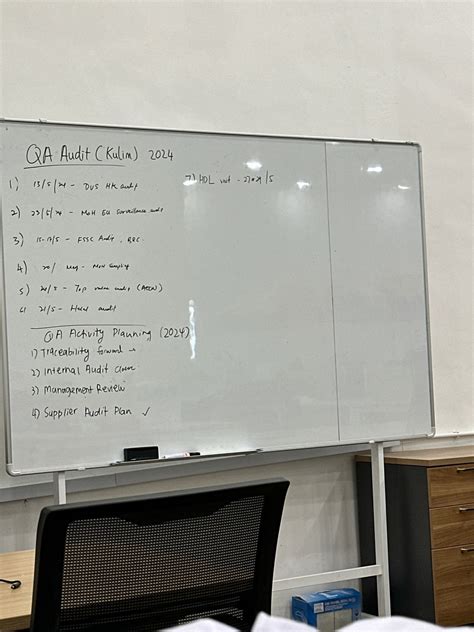 QA Audit (Kulim) 2024
1) 13/5/24 - DVS HK audit
2) 23/5/24 - MoH EU Surveillance audit
3) 15-17/5 - FSSC Audit, BRC.
4) 20/ May - MoH Sampling
5) 24/5 - Top value audit
6) 21/5 - Halal audit
7) HDL visit - /5
QA Activity Planning (2024)
1) Traceability forward
2) Internal Audit
3) Management Review
4) Supplier Audit Plan ✓